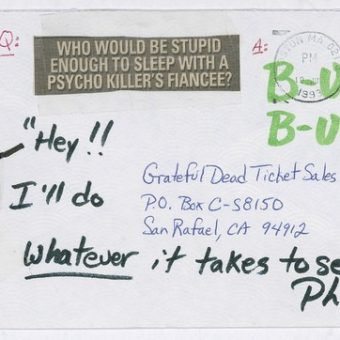 Q:
WHO WOULD BE STUPID
ENOUGH TO SLEEP WITH A
PSYCHO KILLER'S FIANCEE?
A:
MA 02
PM
1993
B-U
B-U
"Hey!!
I'll do
whatever it takes to se
Ph
Grateful Dead Ticket Sales
P.O. Box C-S8150
San Rafael, CA 94912